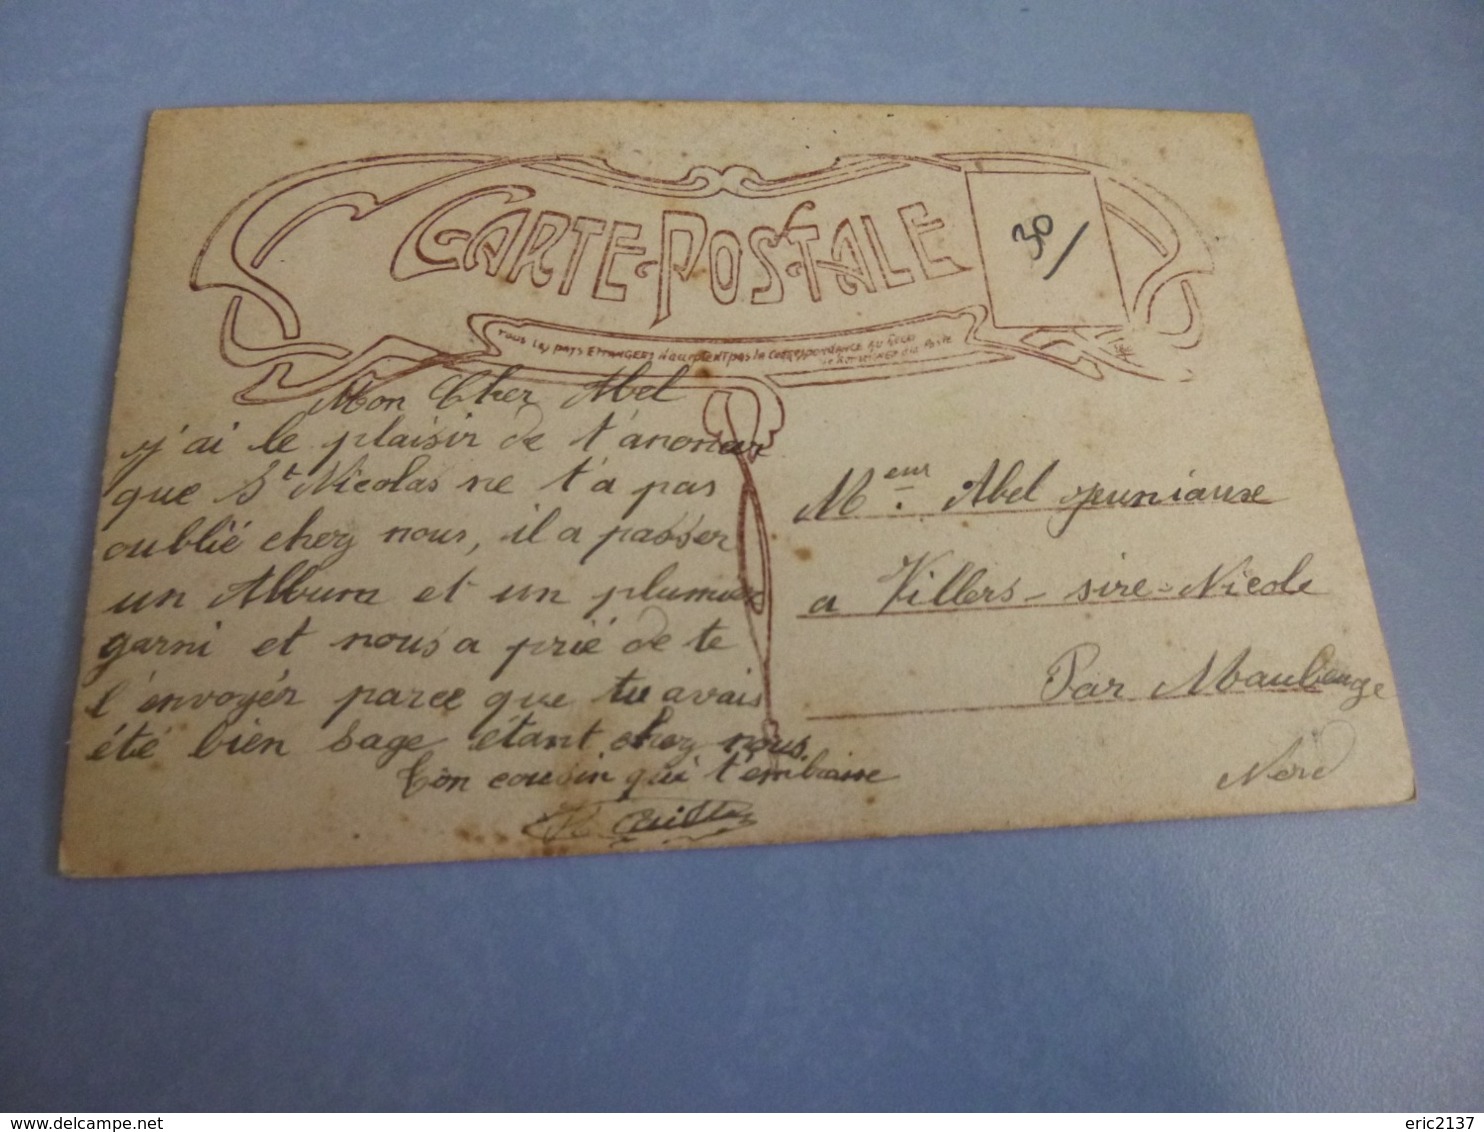 CARTE-POSTALE
30/
TOUS LES PAYS ETRANGERS N'acceptent pas la Correspondance AU RECTO
Mon Cher Abel
j'ai le plaisir de t'anoncer
que St Nicolas ne t'a pas
oublié chez nous, il a passer
un Album et un plumier
garni et nous a prié de te
l'envoyér parce que tu avais
été bien sage étant chez nous.
Ton cousin qui t'embrasse
Meur Abel Juniaux
a Villers-sire-Nicole
Par Maubeuge
Nord
eric2137